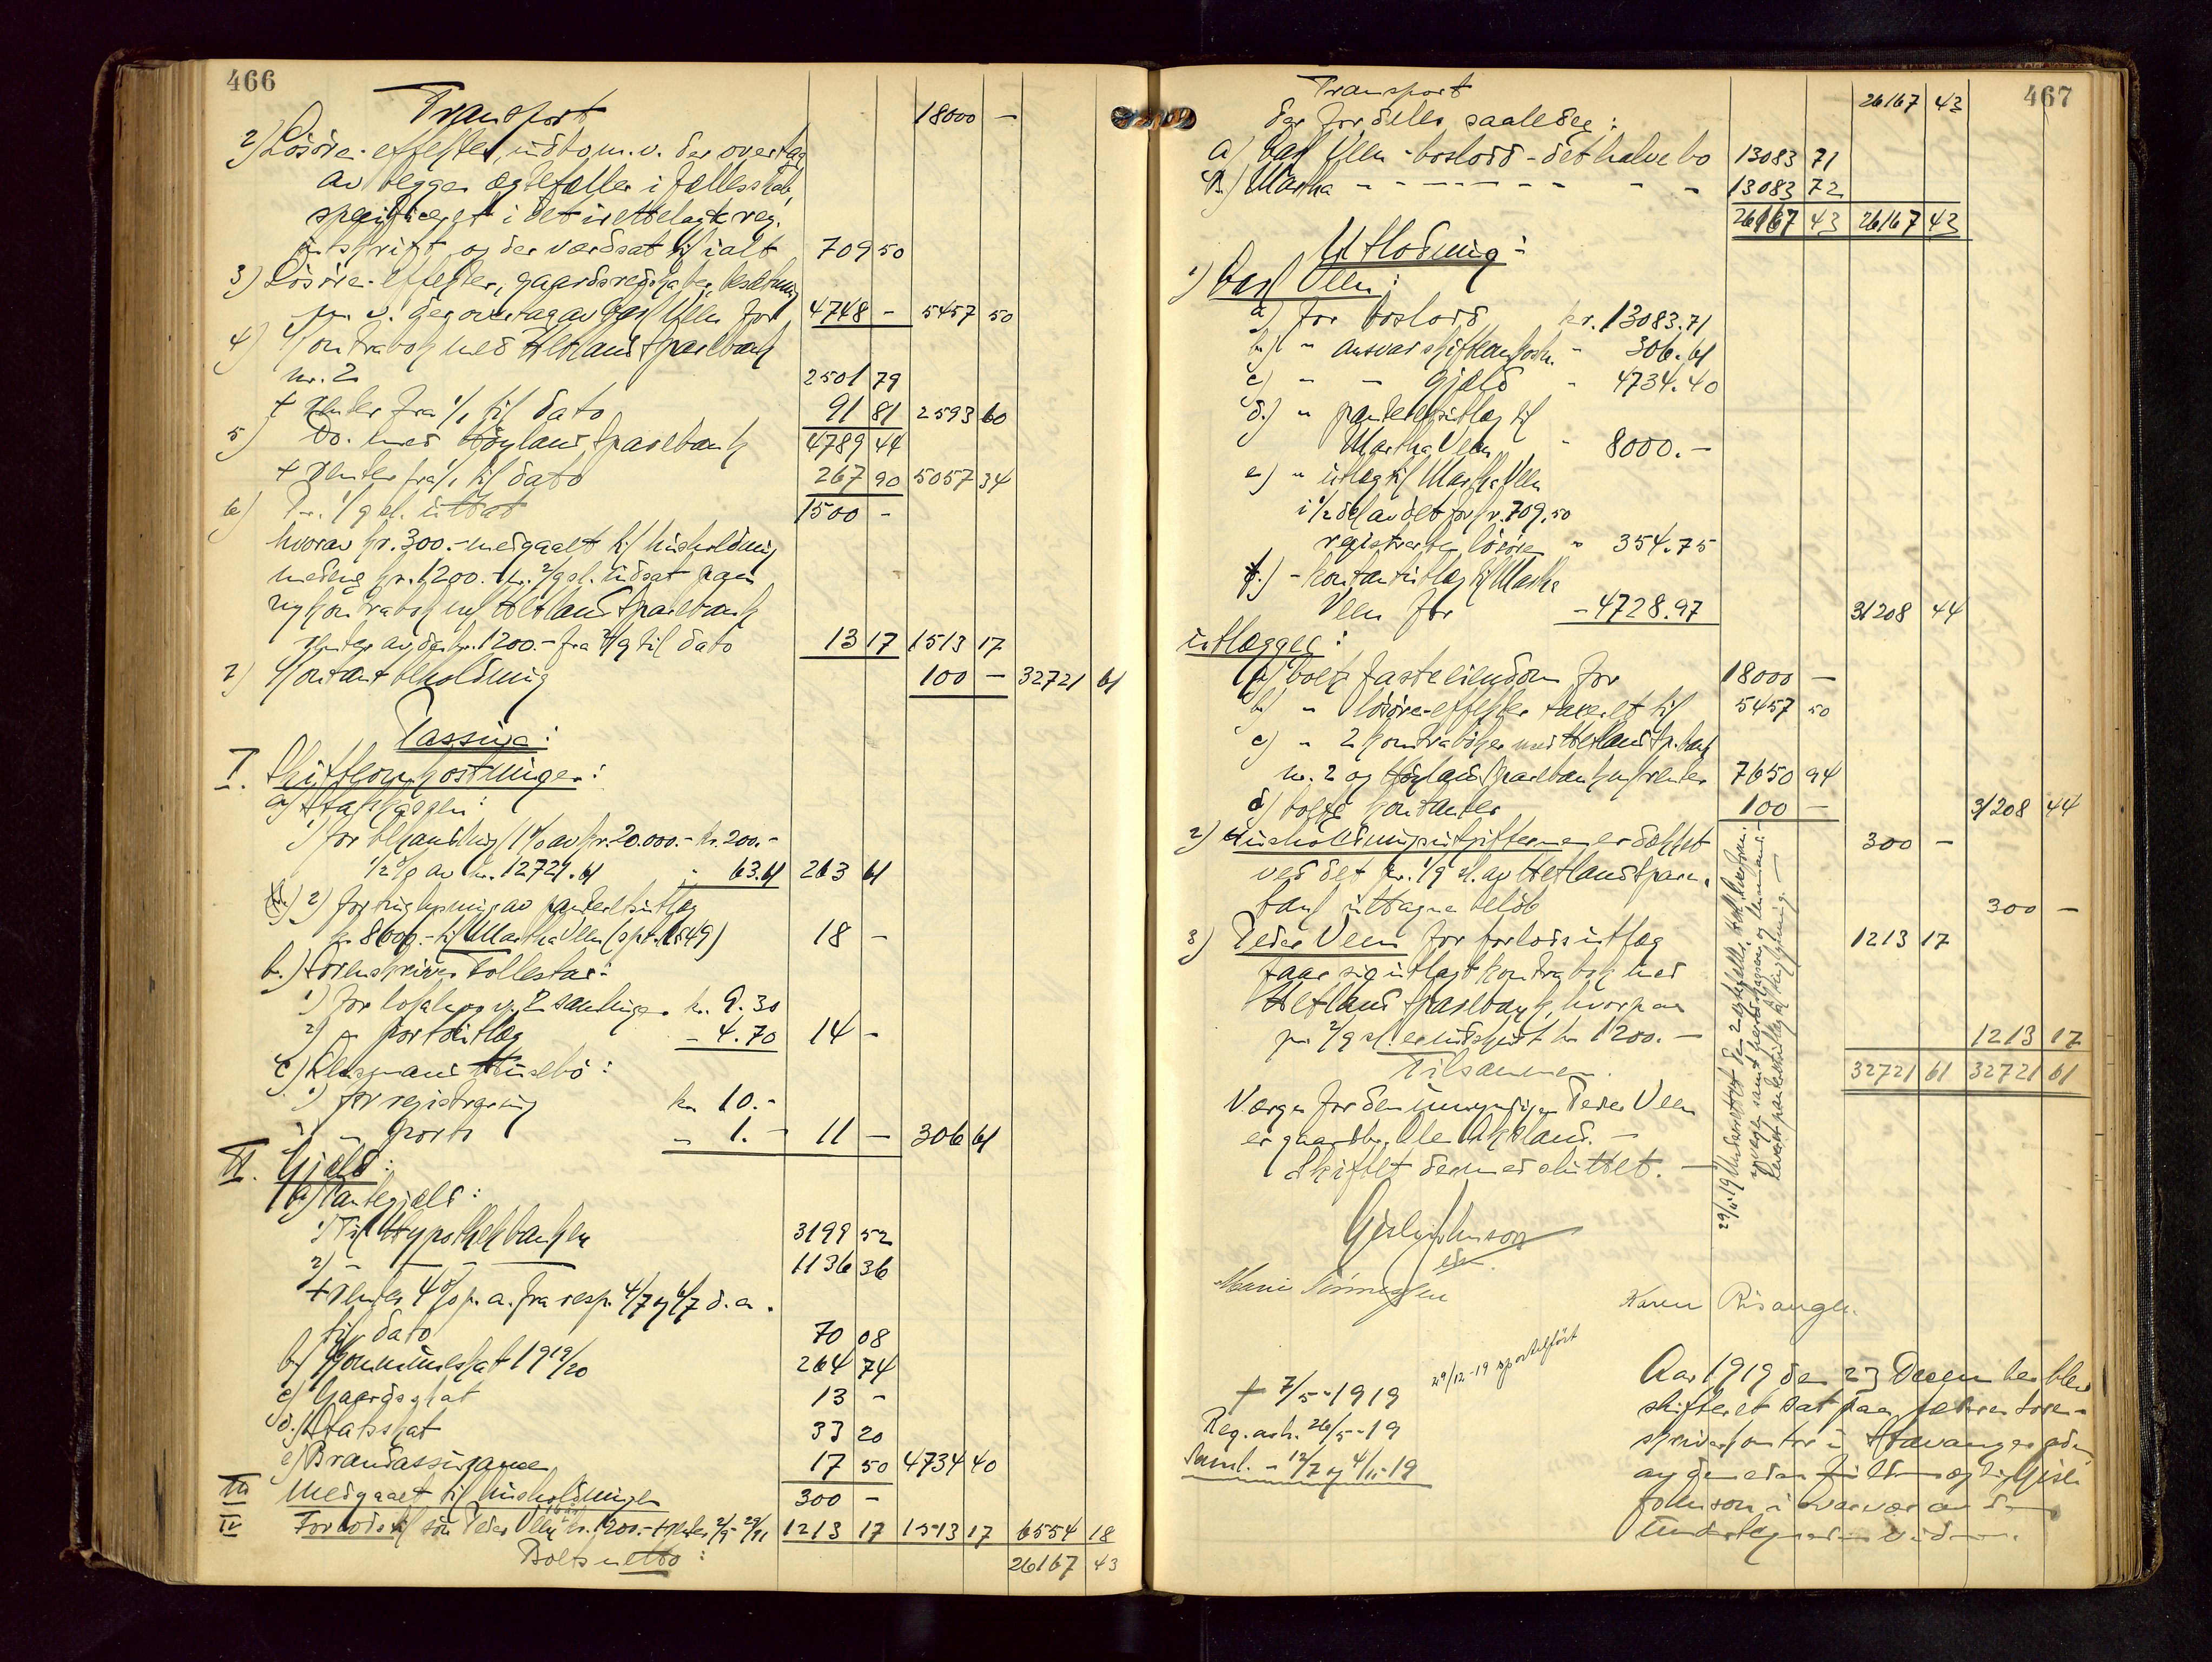 466
Transport 18000 -
2) Løsøre-effekter, indbo m.v. der overtag
av begge ægtefæller i fællesskab,
specificeret i det irettelagte reg.
utskrift og der værdsat til ialt 709 50
3) Løsøre-effekter, gaardsredskaber, besætning
m. v. der overtag av Carl Veen for 4748 - 5457 50
4) Kontrabok med Hetland Sparebank
nr. 2 2501 79
+ renter fra 1/1 til dato 91 81 2593 60
5) Do. med Høyland Sparebank 4789 44
+ renter fra 1/1 til dato 267 90 5057 34
6) Pr. 1/9 sl. uttat 1500 -
hvorav kr. 300.- medgaaet til husholdning
medens kr. 1200.- pr. 2/9 sl. indsat paa
ny kontrabok ved Hetland Sparebank
renter av de kr. 1200.- fra 2/9 til dato 13 17 1513 17
7) Kontant beholdning 100 - 32721 61
Passiva:
I. Skifteomkostninger:
a) Statskassen:
1) for behandling 1% av kr. 20.000.- kr. 200.-
1/2 % av kr. 12721.61 " 63.61 263 61
2) for tinglysning av panteretsutlæg
kr 8000.- til Martha Veen (spt. 1549) 18 -
b.) Sorenskriver Tollefsen:
1) for lokale og v. 2 samlinger kr. 9.30
2) " portoutlæg - 4.70 14 -
c) Lensmand Husebø:
1) for registrering kr. 10.-
2) " porto " 1.- 11 - 306 61
II. Gjæld:
a) Pantegjæld:
1) Til Hypothekbanken 3199 52
2) " - - 1136 36
+ renter 4 % p. a. fra resp. 4/7 og 6/7 d. a.
til dato 70 08
b) Kommuneskat 1919/20 264 74
c) Gaardsskat 13 -
d.) Statsskat 33 20
e) Brandassurance 17 50 4734 40
III Medgaaet til husholdningen 300 -
IV Forlods til søn Peder Veen kr. 1200.- + renter 2/9-29/11 1213 17 1513 17 6554 18
Boets netto: 26167 43
467
Transport 26167 43
der fordeles saaledes:
a) Carl Veen - boslodd - det halve bo 13083 71
b.) Martha - - - - - - - - - 13083 72
26167 43 26167 43
Utlodning:
1) Carl Veen:
a) for boslodd kr. 13083.71
b) " ansvar skifteomkostn. " 306.61
c) " - gjæld " 4734.40
d.) " panteretsutlæg til
Martha Veen " 8000.-
e) " utlæg til Martha Veen
i 1/2 del av det for kr. 709.50
registrerte løsøre " 354.75
f.) - kontantutlæg til Martha
Veen for - 4728.97 31208 44
utlægges:
a) boets fasteiendom for 18000 -
b) " løsøre-effekter taxeret til 5457 50
c) " 2 kontrabøker med Hetland Sp.bank
nr. 2 og Høyland Sparebank m/renter 7650 94
d) boets kontanter 100 - 31208 44
2) Husholdningsutgifterne er dækket 300 -
ved det pr. 1/9 sl. av Hetland Spare-
bank uttagne beløb 300 -
3) Peder Veen for forlodsutlæg 1213 17
faar sig utlagt kontrabok med
Hetland Sparebank, hvorpaa
pr. 2/9 sl. er indskudt kr 1200.- 1213 17
Tilsammen. 32721 61 32721 61
Værge for den umyndige Peder Veen
er gaardbr. Ole Aksland. -
Skiftet dermed sluttet. -
Gisle Johnson
Karen Risanger.
29/12-19 sportelført
† 7/5-1919
Reg. avh. 26/5-19
Saml. - 12/7 og 4/11-19
Aar 1919 den 23 December blev
skifteret sat paa Jæderen soren-
skriverkontor i Stavanger
Johnson i overvær av de
undertegnede vidner.